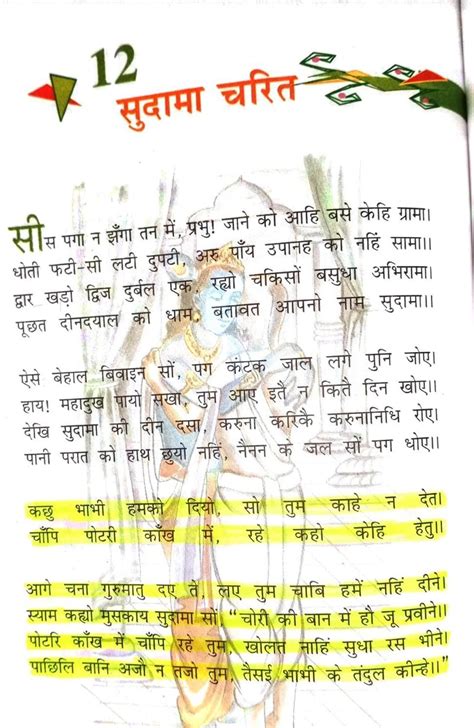 12
सुदामा चरित
सीस पगा न झँगा तन में, प्रभु! जाने को आहि बसे केहि ग्रामा।
धोती फटी-सी लटी दुपटी, अरु पाँय उपानह को नहिं सामा।।
द्वार खड़ो द्विज दुर्बल एक, रह्यो चकिसों बसुधा अभिरामा।
पूछत दीनदयाल को धाम, बतावत आपनो नाम सुदामा।।
ऐसे बेहाल बिवाइन सों, पग कंटक जाल लगे पुनि जोए।
हाय! महादुख पायो सखा, तुम आए इतै न कितै दिन खोए।।
देखि सुदामा की दीन दसा, करुना करिकै करुनानिधि रोए।
पानी परात को हाथ छुयो नहिं, नैनन के जल सों पग धोए।।
कछु भाभी हमको दियो, सो तुम काहे न देत।
चाँपि पोटरी काँख में, रहे कहो केहि हेतु।।
आगे चना गुरुमातु दए ते, लए तुम चाबि हमें नहिं दीने।
स्याम कह्यो मुसकाय सुदामा सों, "चोरी की बान में हौ जू प्रवीने।।
पोटरि काँख में चाँपि रहे तुम, खोलत नाहिं सुधा रस भीने।
पाछिलि बानि अजौ न तजो तुम, तैसई भाभी के तंदुल कीन्हे।।"